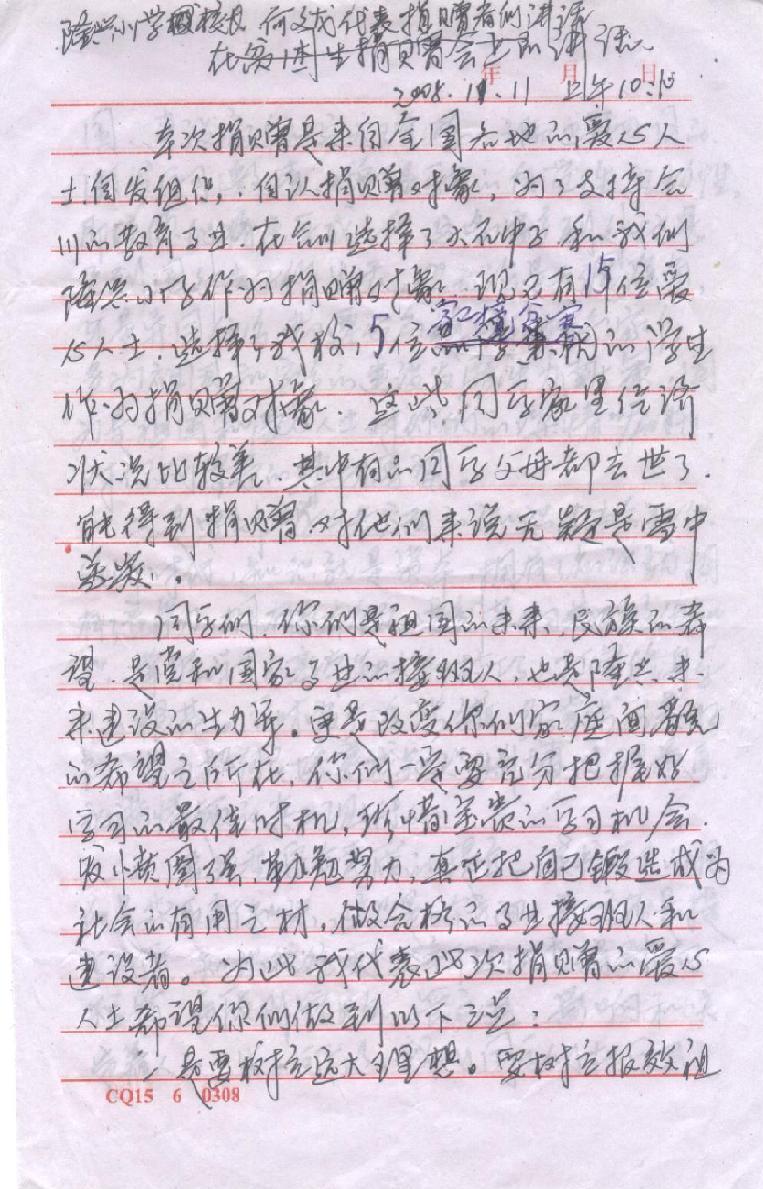 隆兴小学校长 何文成代表捐赠者们讲话
在贫困生捐赠会上的讲话
年 月 日
2008.11.11 上午10:10
本次捐赠是来自全国各地的爱心人
士自发组织,自认捐赠对象,为了支持合
川的教育事业,在合川选择了中学和我们
隆兴小学作为捐赠对象,现已有15位爱
心人士,选择了我校15位家境贫寒的学生
作为捐赠对象,这些同学家里经济
状况比较差,其中有的同学父母都去世了,
能得到捐赠对他们来说无疑是雪中
送炭。
同学们,你们是祖国的未来,民族的希
望,是党和国家事业的接班人,也是隆兴未
来建设的生力军。更是改变你们家庭面貌
的希望之所在,你们一定要充分把握好
学习的最佳时机,珍惜宝贵的学习机会,
发愤图强,勤勉努力,真正把自己锻造成为
社会的有用之材,做合格的事业接班人和
建设者。为此我代表此次捐赠的爱心
人士希望你们做到以下三点:
一是要树立远大理想。要树立报效祖
CQ15 6 0308